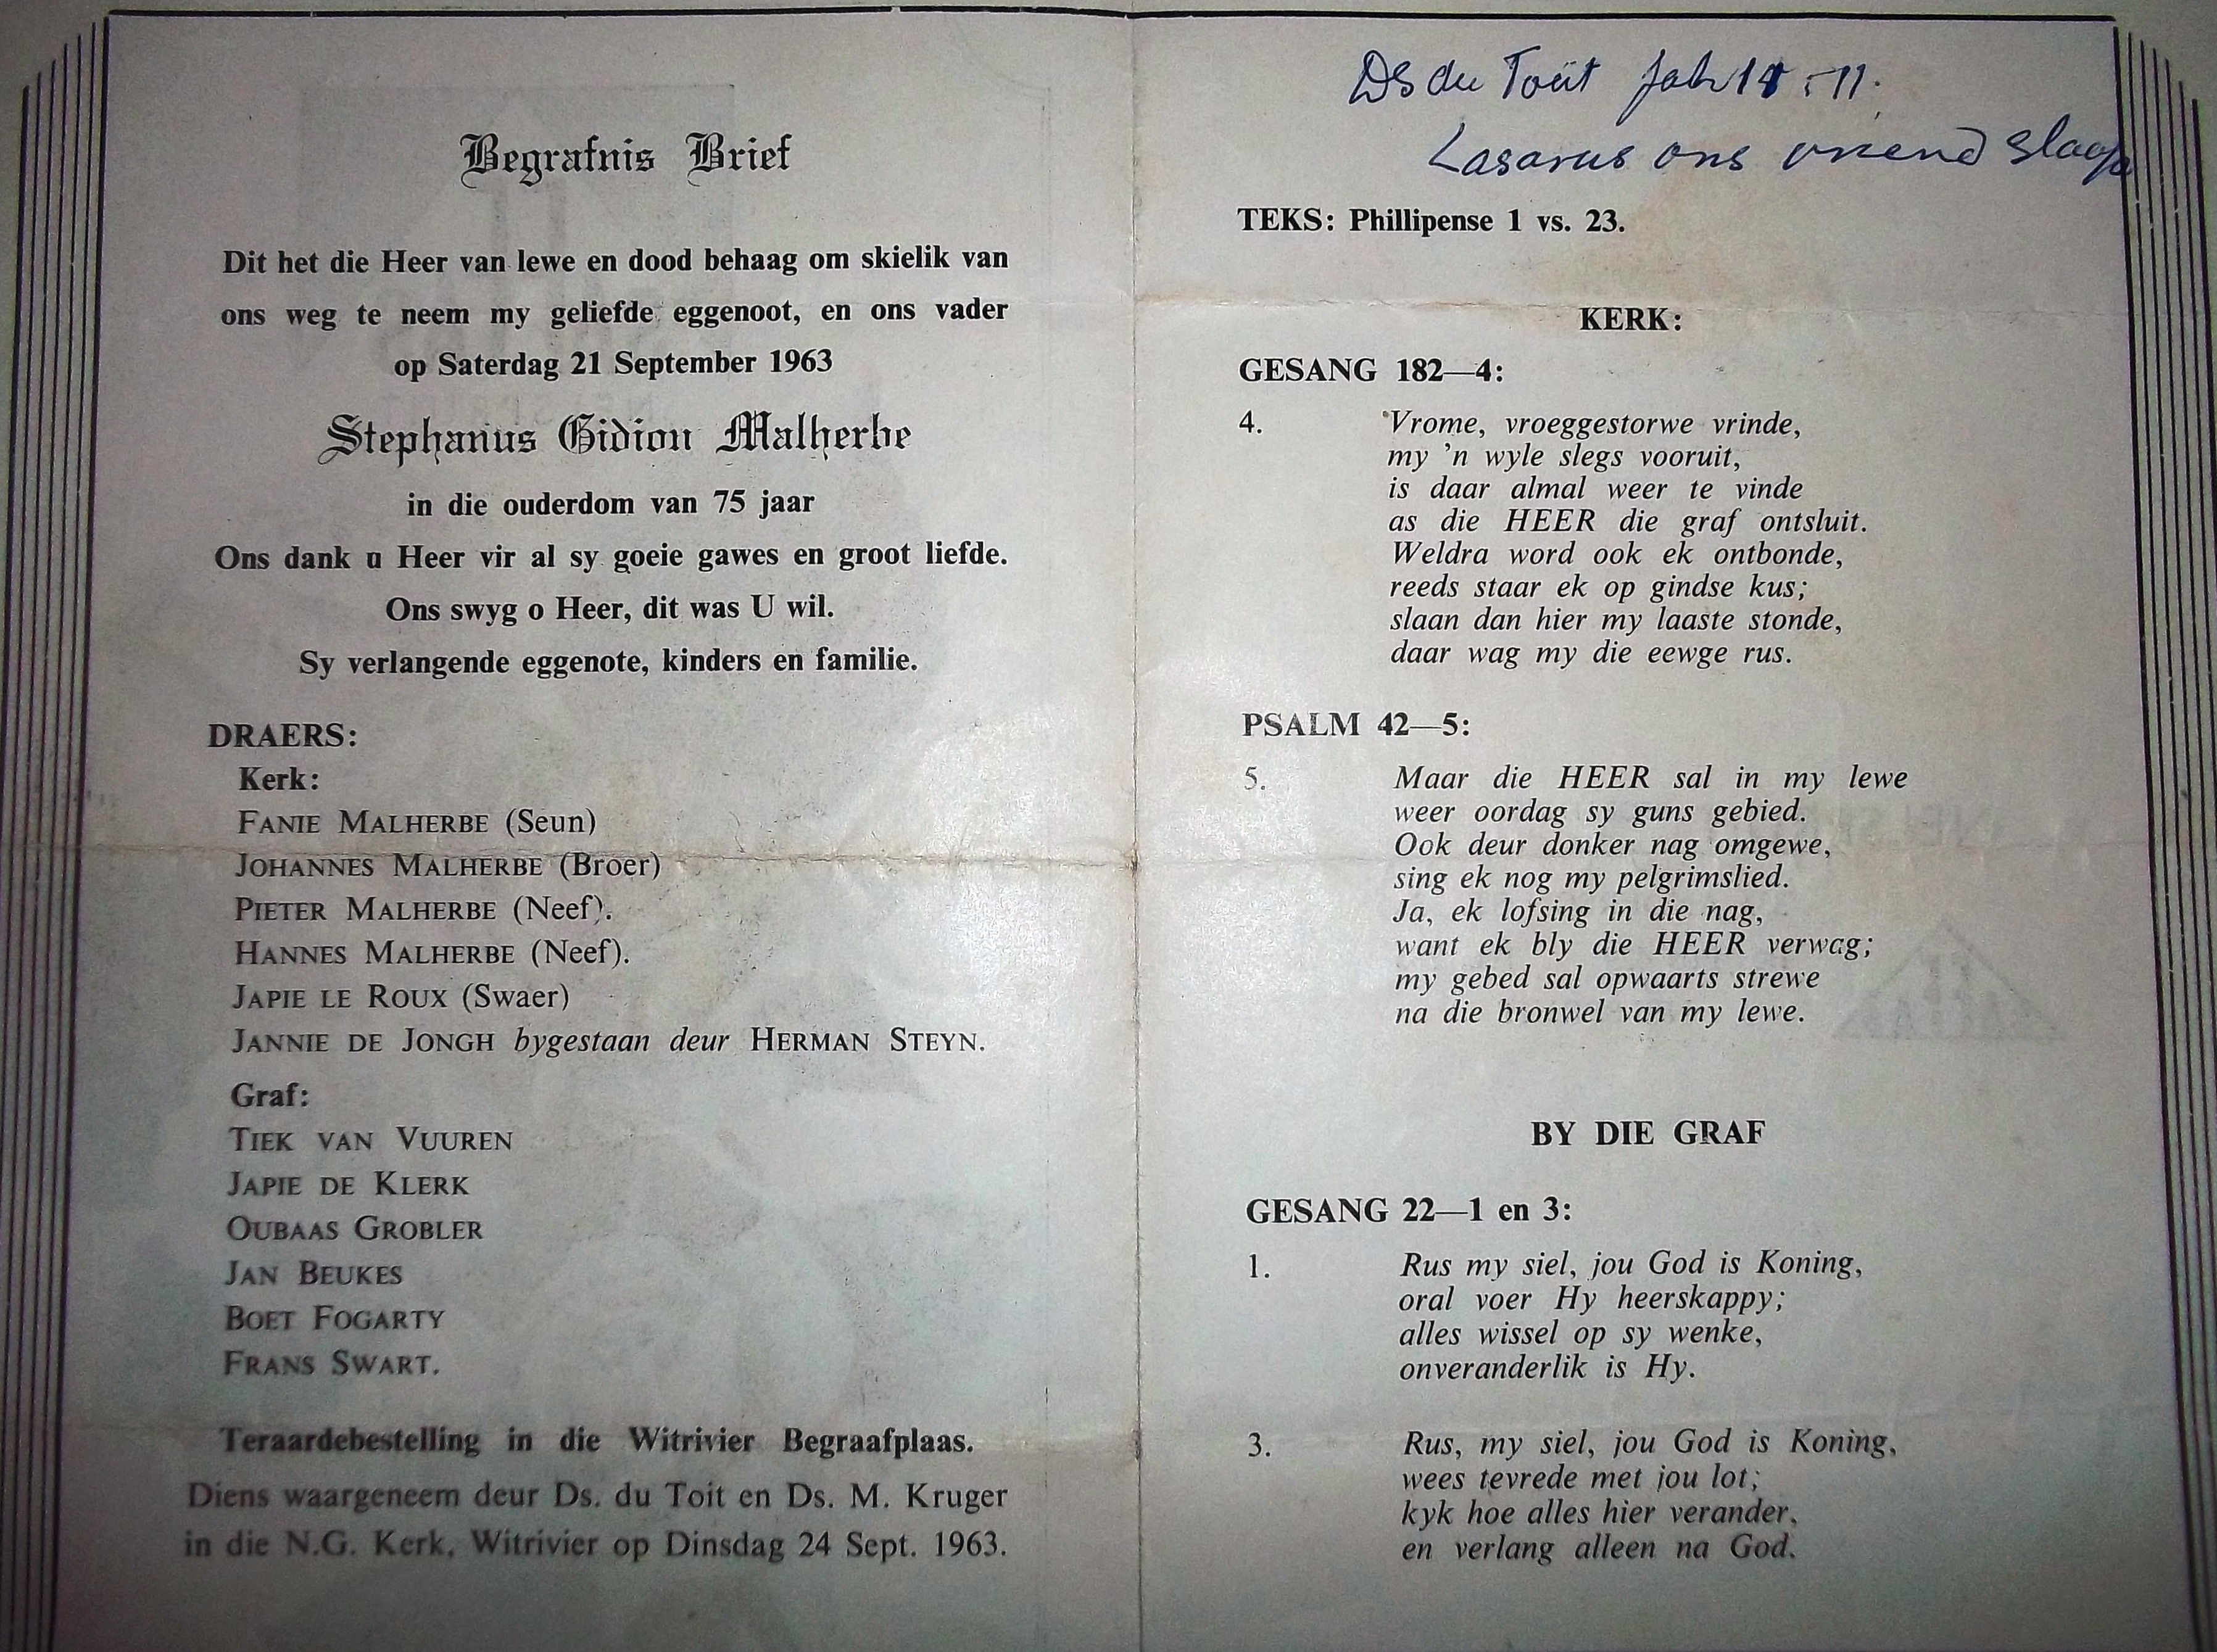 Begrafnis Brief
Dit het die Heer van lewe en dood behaag om skielik van
ons weg te neem my geliefde eggenoot, en ons vader
op Saterdag 21 September 1963
Stephanus Gidion Malherbe
in die ouderdom van 75 jaar
Ons dank u Heer vir al sy goeie gawes en groot liefde.
Ons swyg o Heer, dit was U wil.
Sy verlangende eggenote, kinders en familie.
DRAERS:
Kerk:
FANIE MALHERBE (Seun)
JOHANNES MALHERBE (Broer)
PIETER MALHERBE (Neef).
HANNES MALHERBE (Neef).
JAPIE LE ROUX (Swaer)
JANNIE DE JONGH bygestaan deur HERMAN STEYN.
Graf:
TIEK VAN VUUREN
JAPIE DE KLERK
OUBAAS GROBLER
JAN BEUKES
BOET FOGARTY
FRANS SWART.
Teraardebestelling in die Witrivier Begraafplaas.
Diens waargeneem deur Ds. du Toit en Ds. M. Kruger
in die N.G. Kerk, Witrivier op Dinsdag 24 Sept. 1963.
Ds du Toit 11.
Lasarus ons vriend slaap
TEKS: Phillipense 1 vs. 23.
KERK:
GESANG 182—4:
4. Vrome, vroeggestorwe vrinde,
my 'n wyle slegs vooruit,
is daar almal weer te vinde
as die HEER die graf ontsluit.
Weldra word ook ek ontbonde,
reeds staar ek op gindse kus;
slaan dan hier my laaste stonde,
daar wag my die eewge rus.
PSALM 42—5:
5. Maar die HEER sal in my lewe
weer oordag sy guns gebied.
Ook deur donker nag omgewe,
sing ek nog my pelgrimslied.
Ja, ek lofsing in die nag,
want ek bly die HEER verwag;
my gebed sal opwaarts strewe
na die bronwel van my lewe.
BY DIE GRAF
GESANG 22—1 en 3:
1. Rus my siel, jou God is Koning,
oral voer Hy heerskappy;
alles wissel op sy wenke,
onveranderlik is Hy.
3. Rus, my siel, jou God is Koning,
wees tevrede met jou lot;
kyk hoe alles hier verander,
en verlang alleen na God.